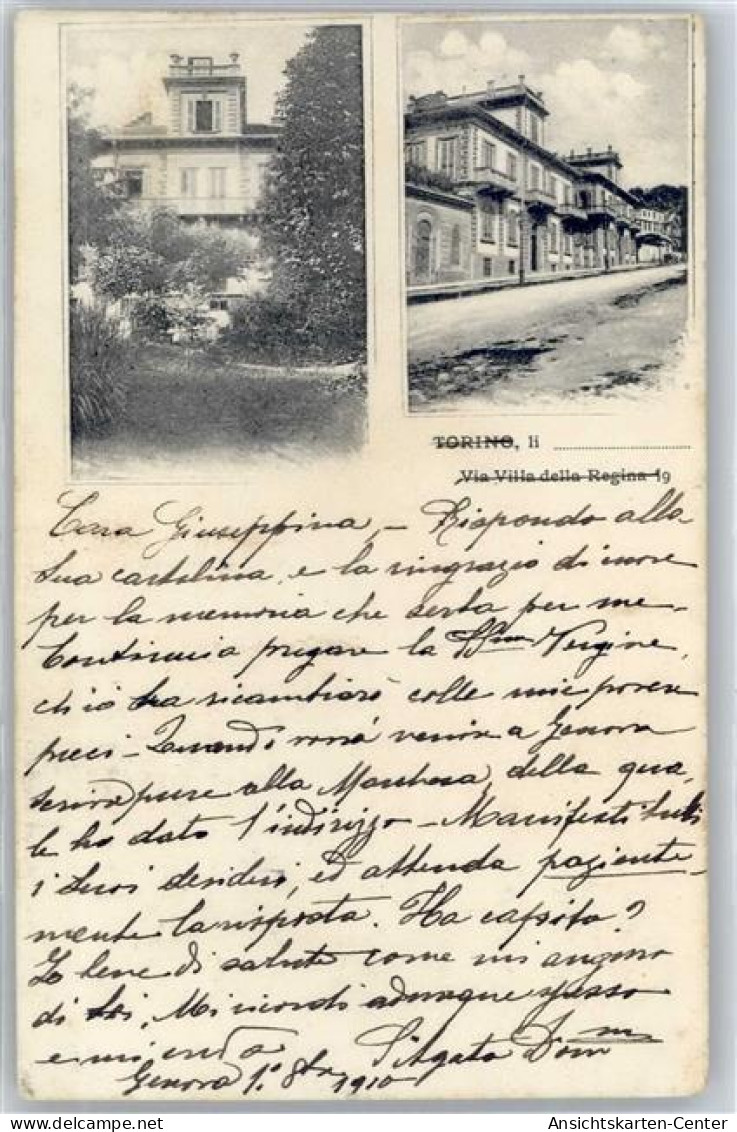 TORINO, li
Via Villa della Regina 19
Cara Giuseppina, - Rispondo alla
sua cartolina, e la ringrazio di cuore
per la memoria che serba per me -
Continui a pregare la SSma Vergine,
ch'io la ricambierò colle mie povere
preci - Quando vorrà venire a Genova
scriva pure alla Marchesa, della qua-
le ho dato l'indirizzo - Manifesti tutti
i suoi desideri, ed attenda paziente-
mente la risposta. Ha capito?
Io bene di salute come mi auguro
di Lei. Mi ricordi adunque spesso
e mi creda
S. Agata
Genova 1° 8bre 1910
Ansichtskarten-Center